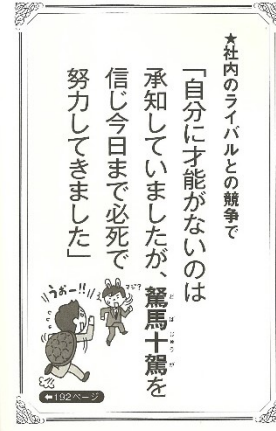 ★社内のライバルとの競争で
「自分に才能がないのは
承知していましたが、駑馬十駕を
信じ今日まで必死で
努力してきました」
どばじゅうが
うおー!!
マジ?
←192ページ